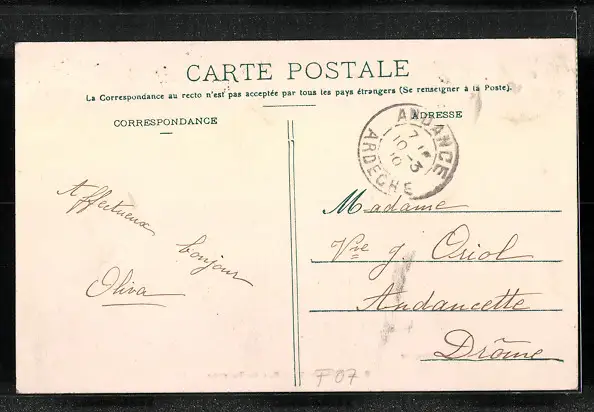 CARTE POSTALE
La Correspondance au recto n'est pas acceptée par tous les pays étrangers (Se renseigner à la Poste).
CORRESPONDANCE
ADRESSE
ANDANCE
10 -3
10
ARDECHE
Affectueux
bonjour
Oliva
Madame
Vve J. Oriol
Andancette
Drôme
F07